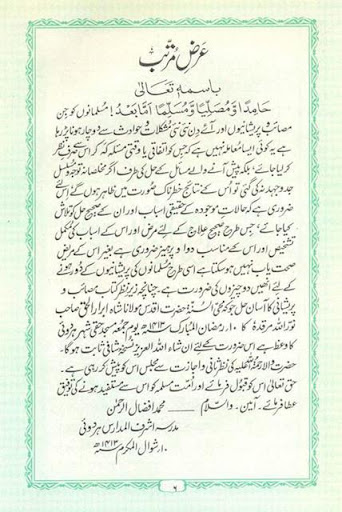 عرضِ مُرتّب
باسمہٖ تعالیٰ
حَامِدًا وَّمُصَلِّیًا وَّمُسْلِّمًا اَمَّا بَعْدُ! مُسلمانوں کو جن
مصائب و پریشانیوں اور آئے دن نئی نئی مُشکلات و حوادث سے دوچار ہونا پڑ رہا
ہے یہ کوئی ایسا معاملہ نہیں ہے کہ جس کو اتفاقی یا وقتی مسئلہ کہہ کر اس سے صرفِ نظر
کر لیا جائے، بلکہ پیش آنے والے مسائل کے حل کی طرف اگر مخلصانہ توجہ و مسلسل
جدوجہد نہ کی گئی تو اُس کے نتائج خطرناک صورت میں ظاہر ہوں گے اسلئے
ضروری ہے کہ حالاتِ موجودہ کے حقیقی اسباب اور ان کے صحیح حل کو تلاش
کیا جائے، جس طرح صحیح علاج کے لئے مرض اور اس کے اسباب کی مکمل
تشخیص اور اس کے مناسب دوا و پرہیز ضروری ہے بغیر اس کے مرض
صحت یاب نہیں ہو سکتا ہے اسی طرح مسلمانوں کی پریشانیوں کے دور ہونے
کے لئے انھیں دو چیزوں کی ضرورت ہے۔ چنانچہ زیرِ نظر کتاب مصائب و
پریشانی کا آسان حل جو کہ محی السُّنۃ حضرت اقدس مولانا شاہ ابرارُ الحق صاحب
نور اللہ مرقدہٗ کا ۱۰ رمضان المبارک ۱۴۱۳ھ یوم جمعہ مسجد حقی شہر ہردوئی
کا وعظ ہے اس ضرورت کے لئے ان شاء اللہ العزیز نسخۂ شافی ثابت ہوگا۔
حضرت والا کی نظرِ ثانی و اجازت سے مجلس اس کو پیش کر رہی ہے۔
حق تعالیٰ اس کو قبول فرمائے اور اُمتِ مسلمہ کو اس سے مستفید ہونے کی توفیق
عطا فرمائے۔ آمین۔ والسلام ــــــ محمد افضال الرحمٰن
مدرسہ اشرف المدارس ہردوئی
۱۰ شوال المکرم ۱۴۱۳ھ
۶